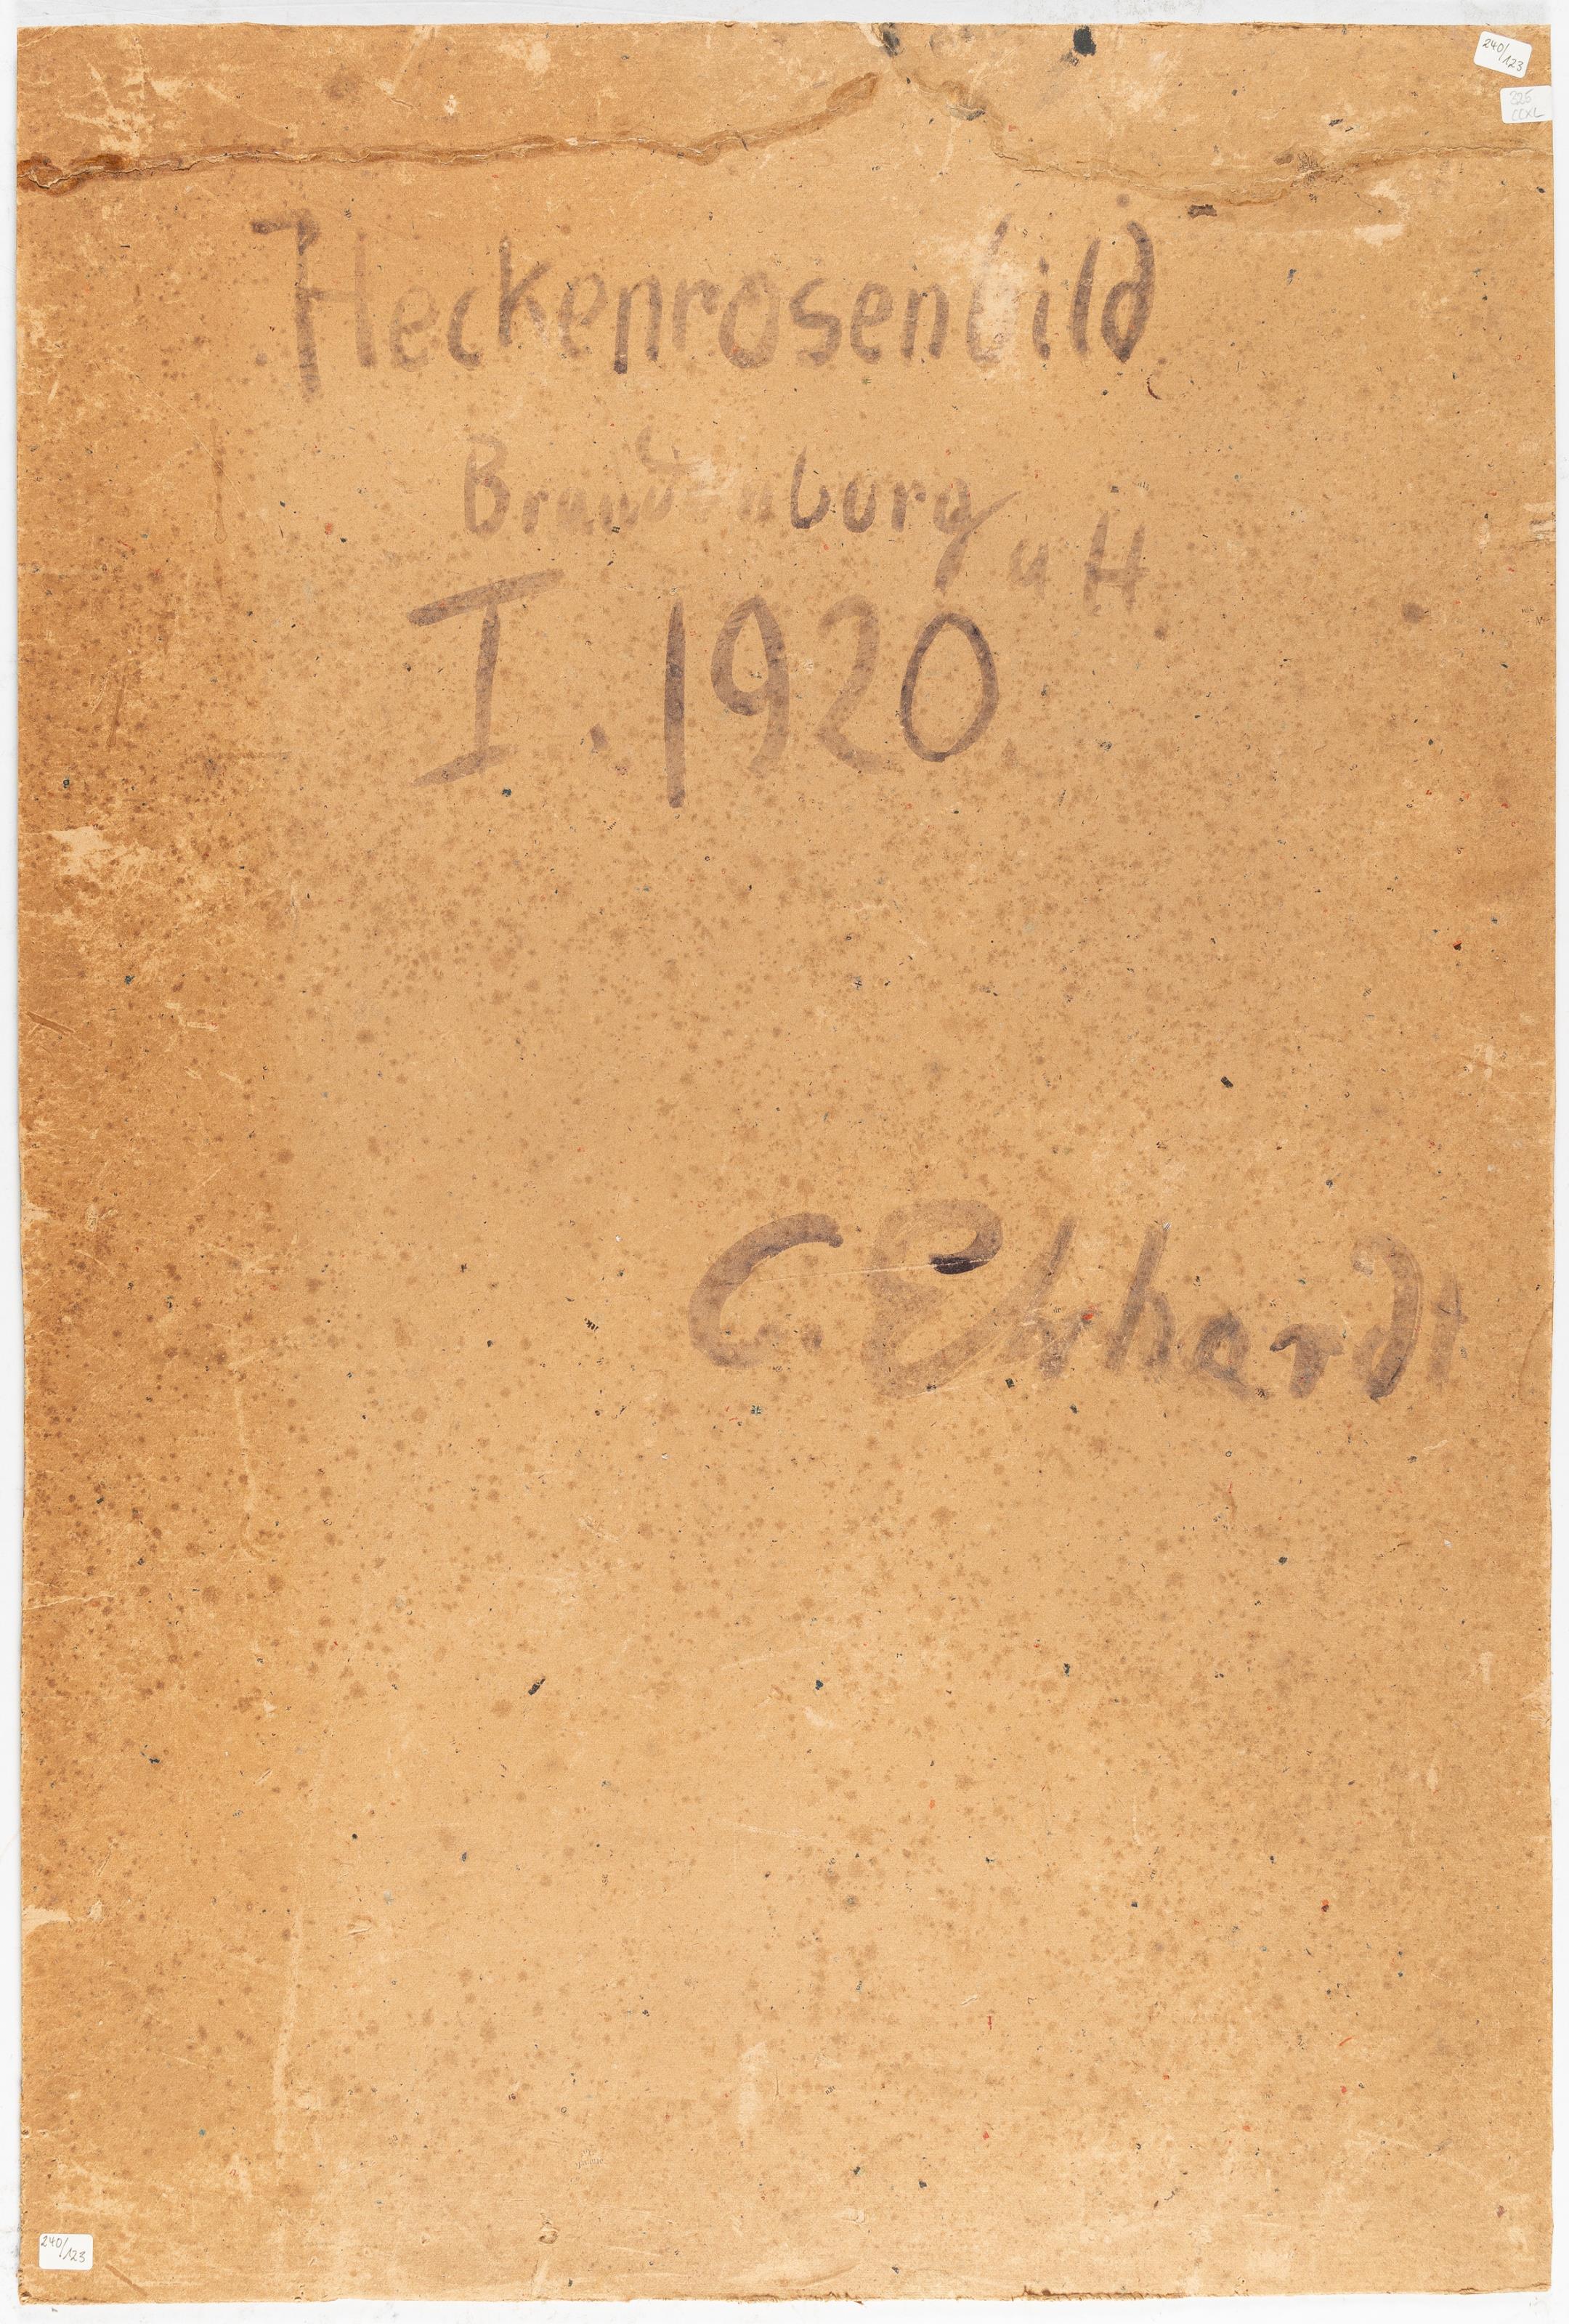 240/123
325
CCXL
Heckenrosenbild
Brandenburg a H
I. 1920
C. Ehrhardt
240/123